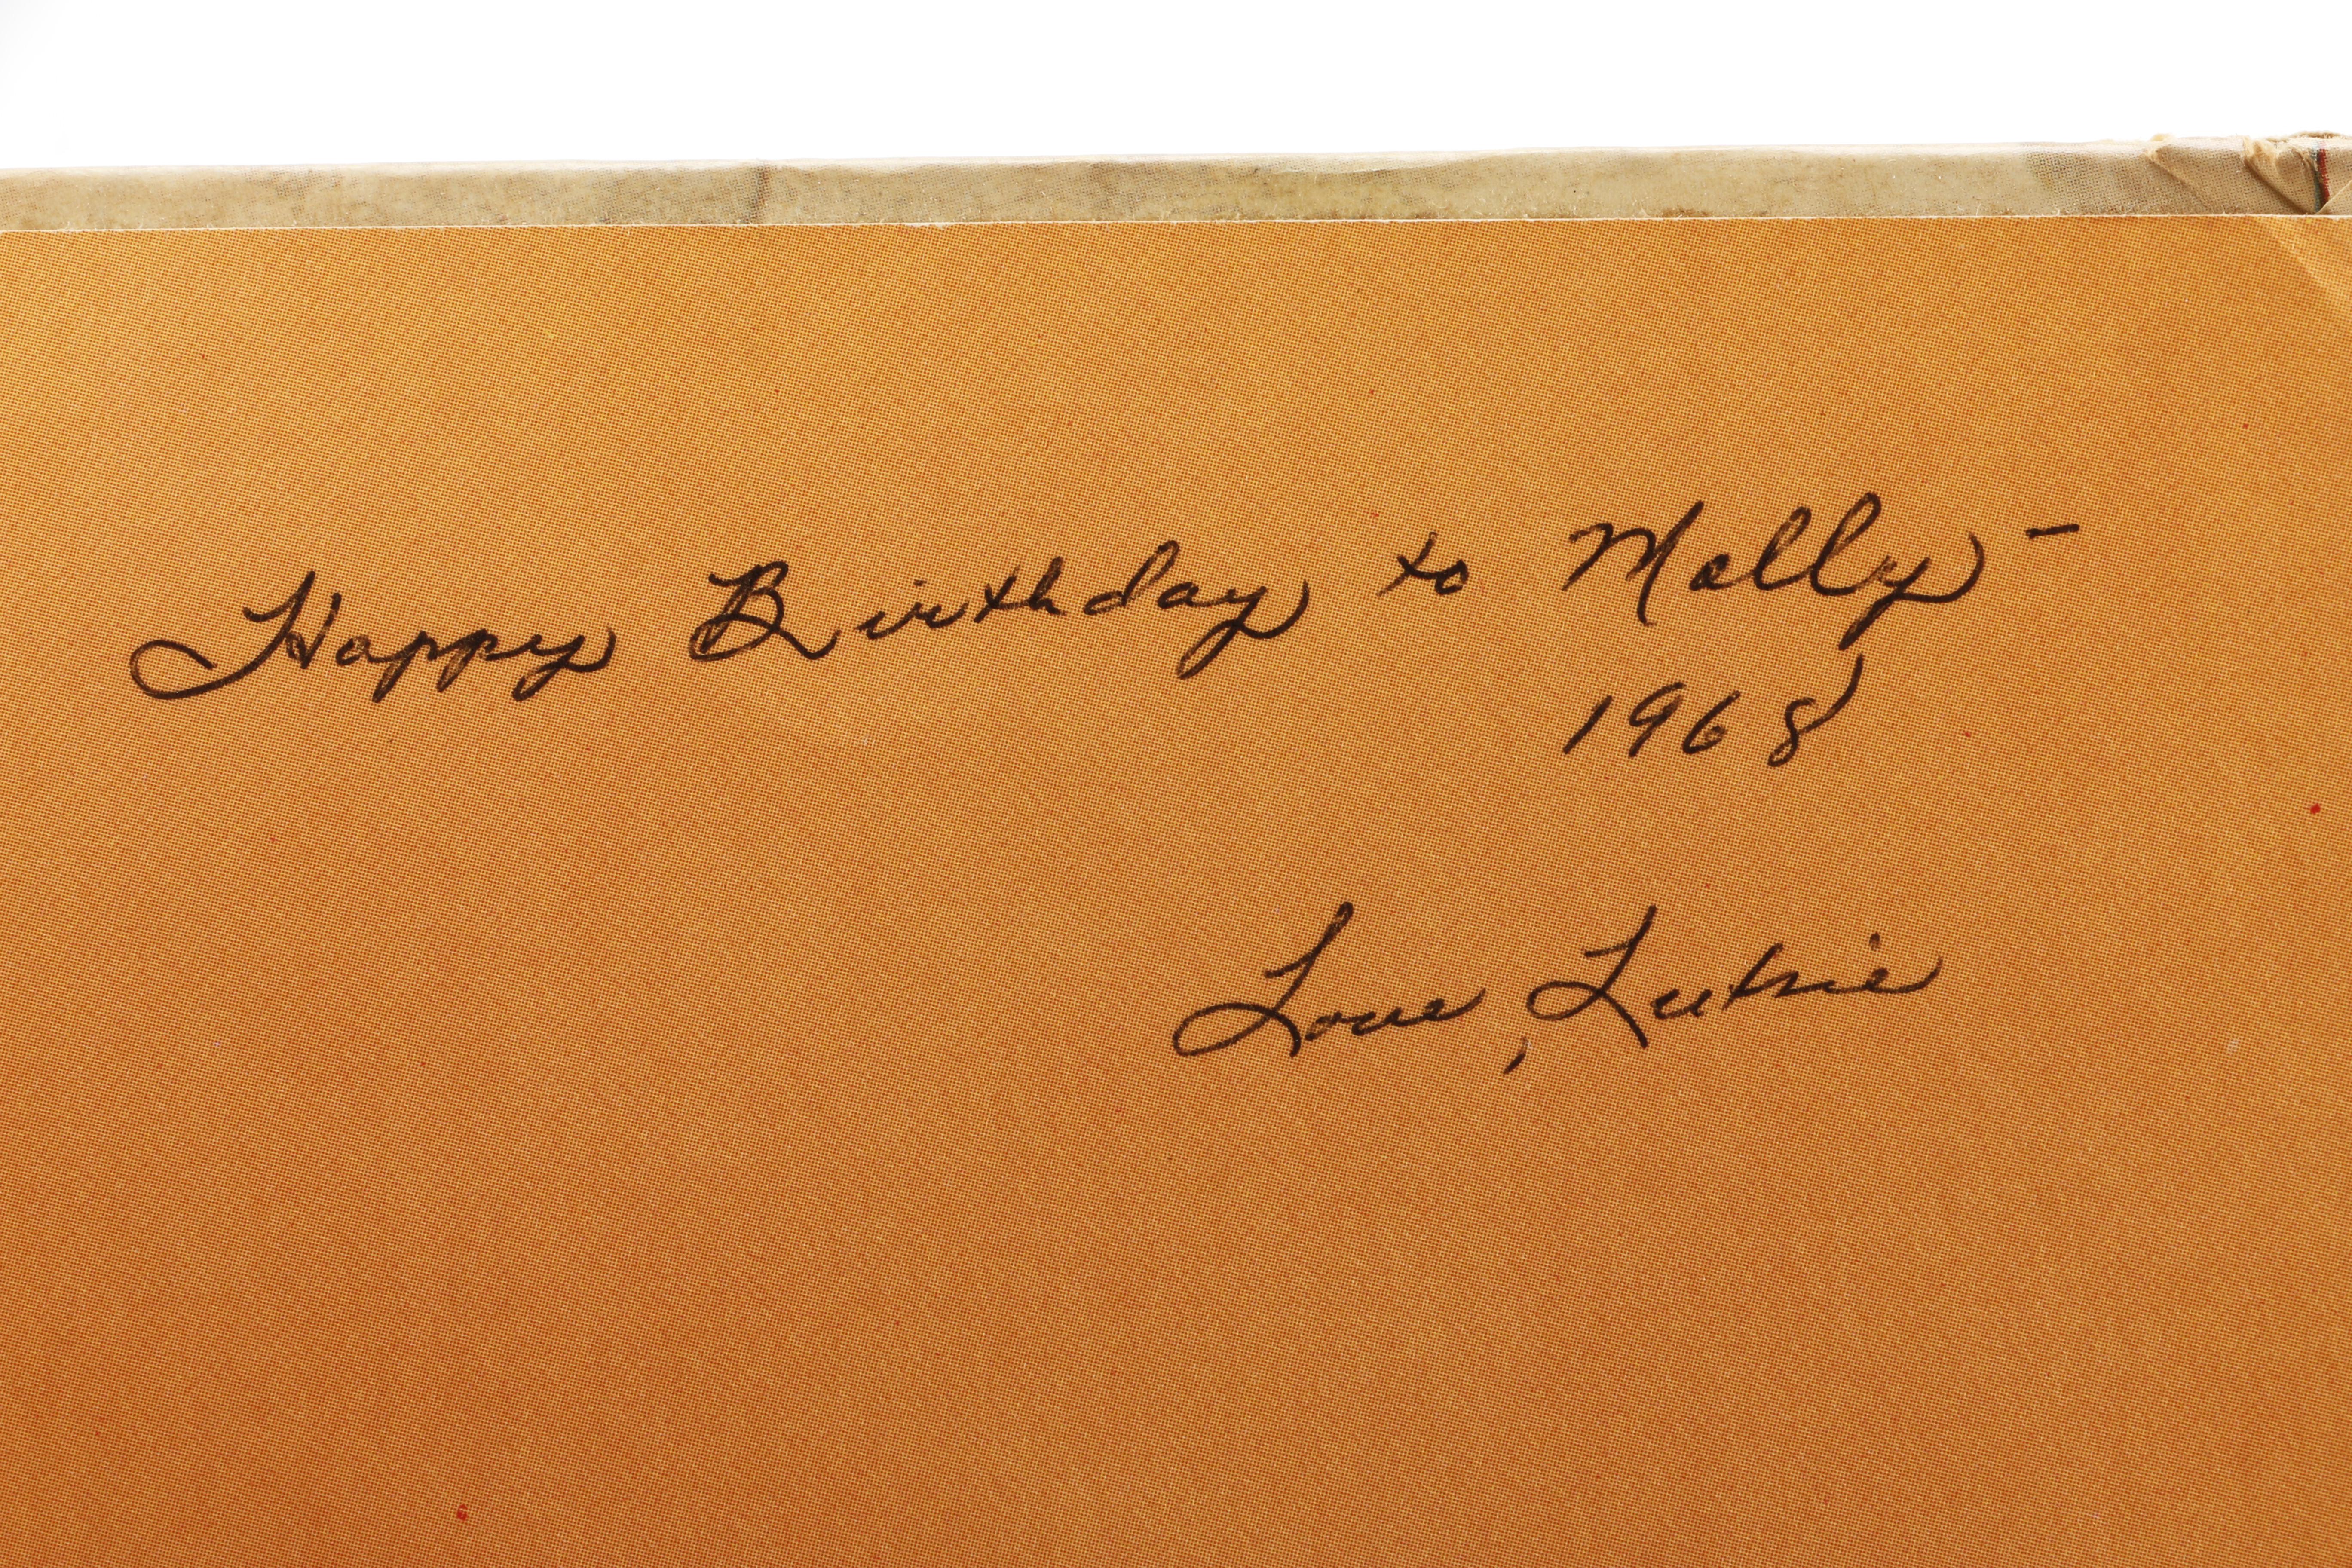 Happy Birthday to Molly -
1968
Love, Lutsie